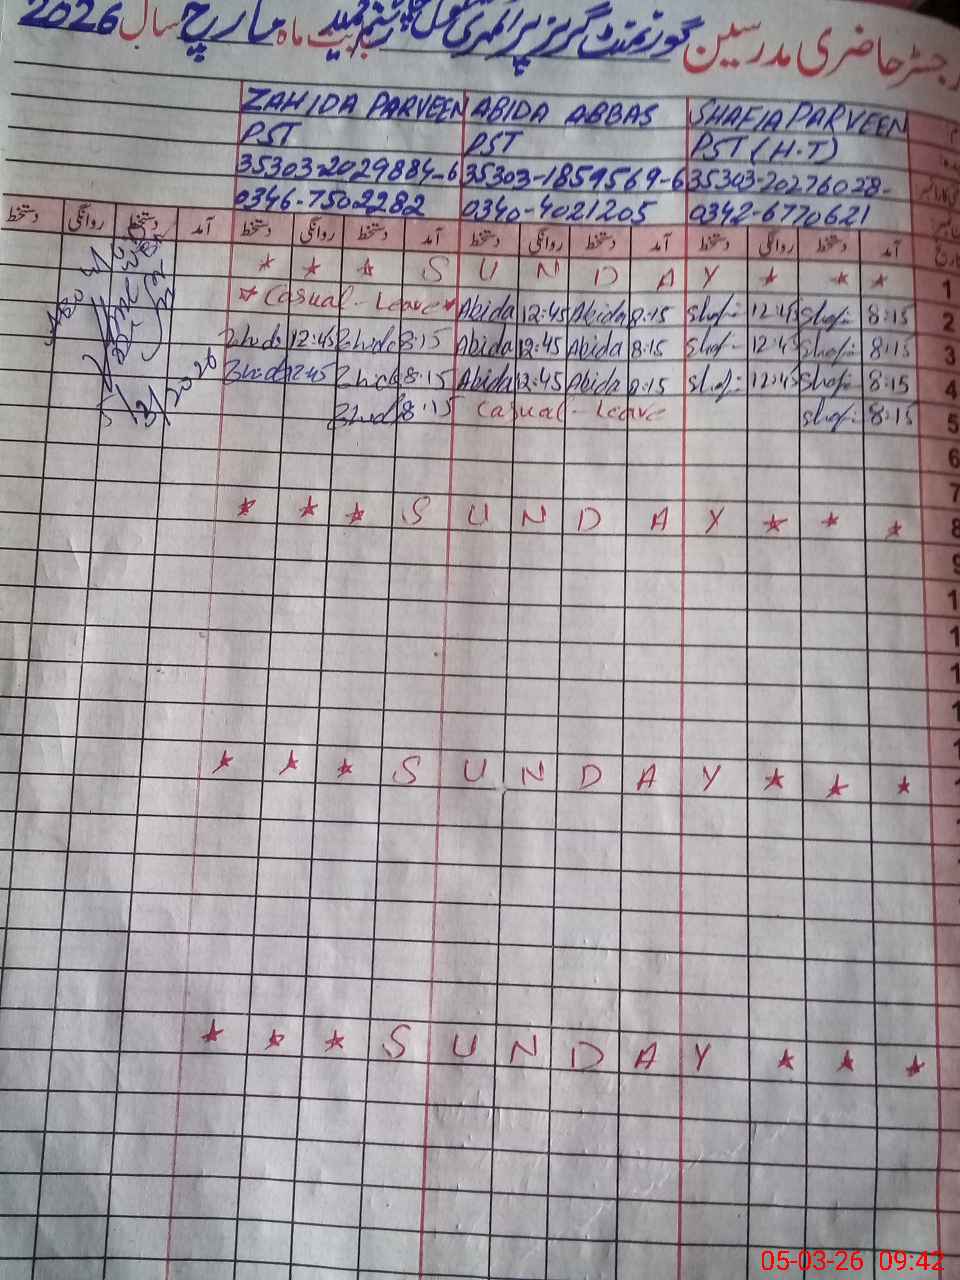 رجسٹر حاضری مدرسین گورنمنٹ گرلز پرائمری سکول بابت ماہ مارچ سال 2026
ZAHIDA PARVEEN ABIDA ABBAS SHAFIA PARVEEN
PST PST PST (H.T)
35303-2029884-6 35303-1859569-6 35303-20276028-
0346-7502282 0340-4021205 0342-6770621
دستخط روانگی دستخط آمد دستخط روانگی دستخط آمد دستخط روانگی دستخط آمد دستخط روانگی دستخط آمد
* * * S U N D A Y * * * 1
* Casual - Leave * Abida 12:45 Abida 8:15 Shaf: 12:45 Shaf: 8:15 2
Zhida 12:45 Zhida 8:15 Abida 12:45 Abida 8:15 Shaf: 12:45 Shaf: 8:15 3
Zhida 12:45 Zhida 8:15 Abida 12:45 Abida 8:15 Shaf: 12:45 Shaf: 8:15 4
Zhida 8:15 Casual - Leave Shaf: 8:15 5
6
7
* * * S U N D A Y * * * 8
9
* * * S U N D A Y * * *
* * * S U N D A Y * * *
05-03-26 09:42